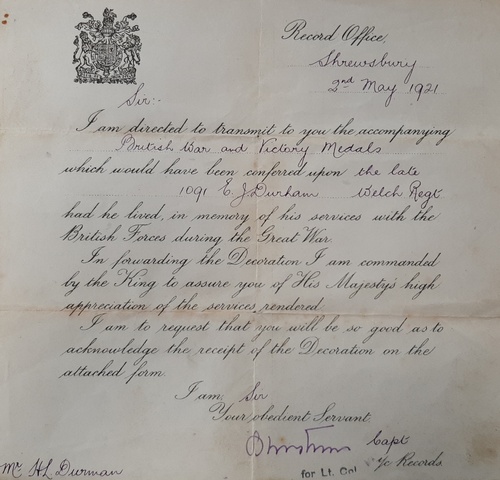 Record Office,
Shrewsbury
2nd May 1921
Sir:-
I am directed to transmit to you the accompanying
British War and Victory Medals
which would have been conferred upon the late
1091 E. J. Durham Welch Regt
had he lived, in memory of his services with the
British Forces during the Great War.
In forwarding the Decoration I am commanded
by the King to assure you of His Majesty's high
appreciation of the services rendered.
I am to request that you will be so good as to
acknowledge the receipt of the Decoration on the
attached form.
I am, Sir
Your obedient Servant.
Capt
for Lt. Col i/c Records
Mr HL Durman